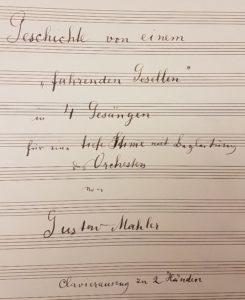 Geschichte von einem
„fahrenden Gesellen"
in 4 Gesängen
für eine tiefe Stimme mit Begleitung
des Orchesters
von
Gustav Mahler
Clavierauszug zu 2 Händen